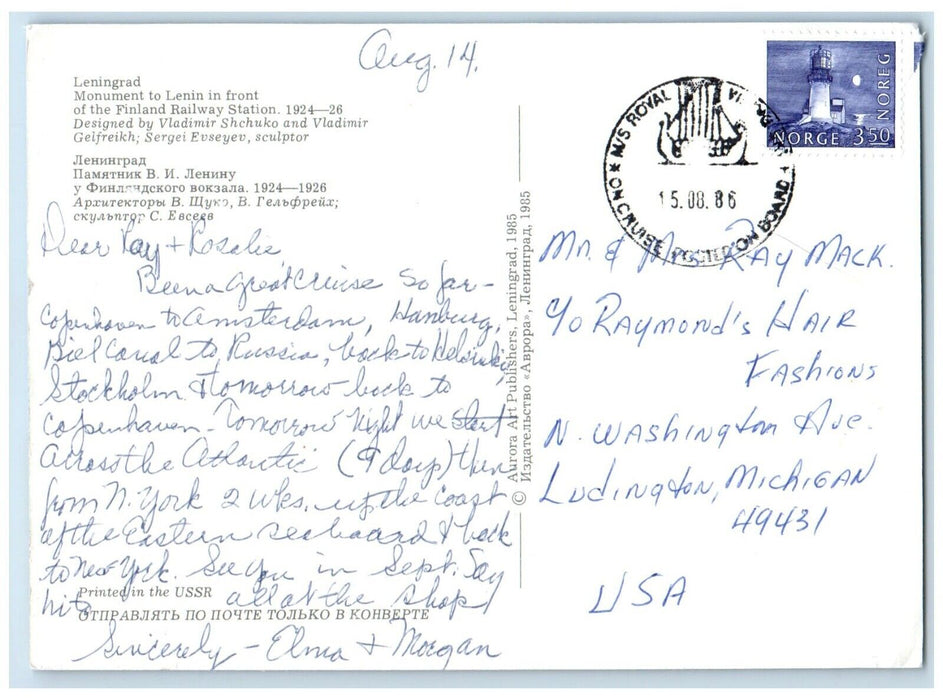 Aug. 14.
Leningrad
Monument to Lenin in front
of the Finland Railway Station. 1924—26
Designed by Vladimir Shchuko and Vladimir
Gelfreikh; Sergei Evseyev, sculptor
Ленинград
Памятник В. И. Ленину
у Финляндского вокзала. 1924—1926
Архитекторы В. Щуко, В. Гельфрейх;
скульптор С. Евсеев
Dear Ray + Rosalie
Been a great cruise so far -
Copenhaven to Amsterdam, Hamburg,
Kiel Canal to Russia, back to Helsinki,
Stockholm & tomorrow back to
Copenhaven - Tomorrow night we start
across the Atlantic (9 days) then
from N. York 2 wks. up the coast
of the Eastern seaboard & back
to New York. See you in Sept. Say
hi to all at the shop!
Sincerely - Elma + Morgan
Printed in the USSR
ОТПРАВЛЯТЬ ПО ПОЧТЕ ТОЛЬКО В КОНВЕРТЕ
© Aurora Art Publishers, Leningrad, 1985
Издательство «Аврора», Ленинград, 1985
M/S ROYAL
15.08.86
ON CRUISE POSTED ON BOARD
NORGE 3.50
NOREG
Mr. & Mrs. Ray Mack.
c/o Raymond's Hair
Fashions
N. Washington Ave.
Ludington, Michigan
49431
USA